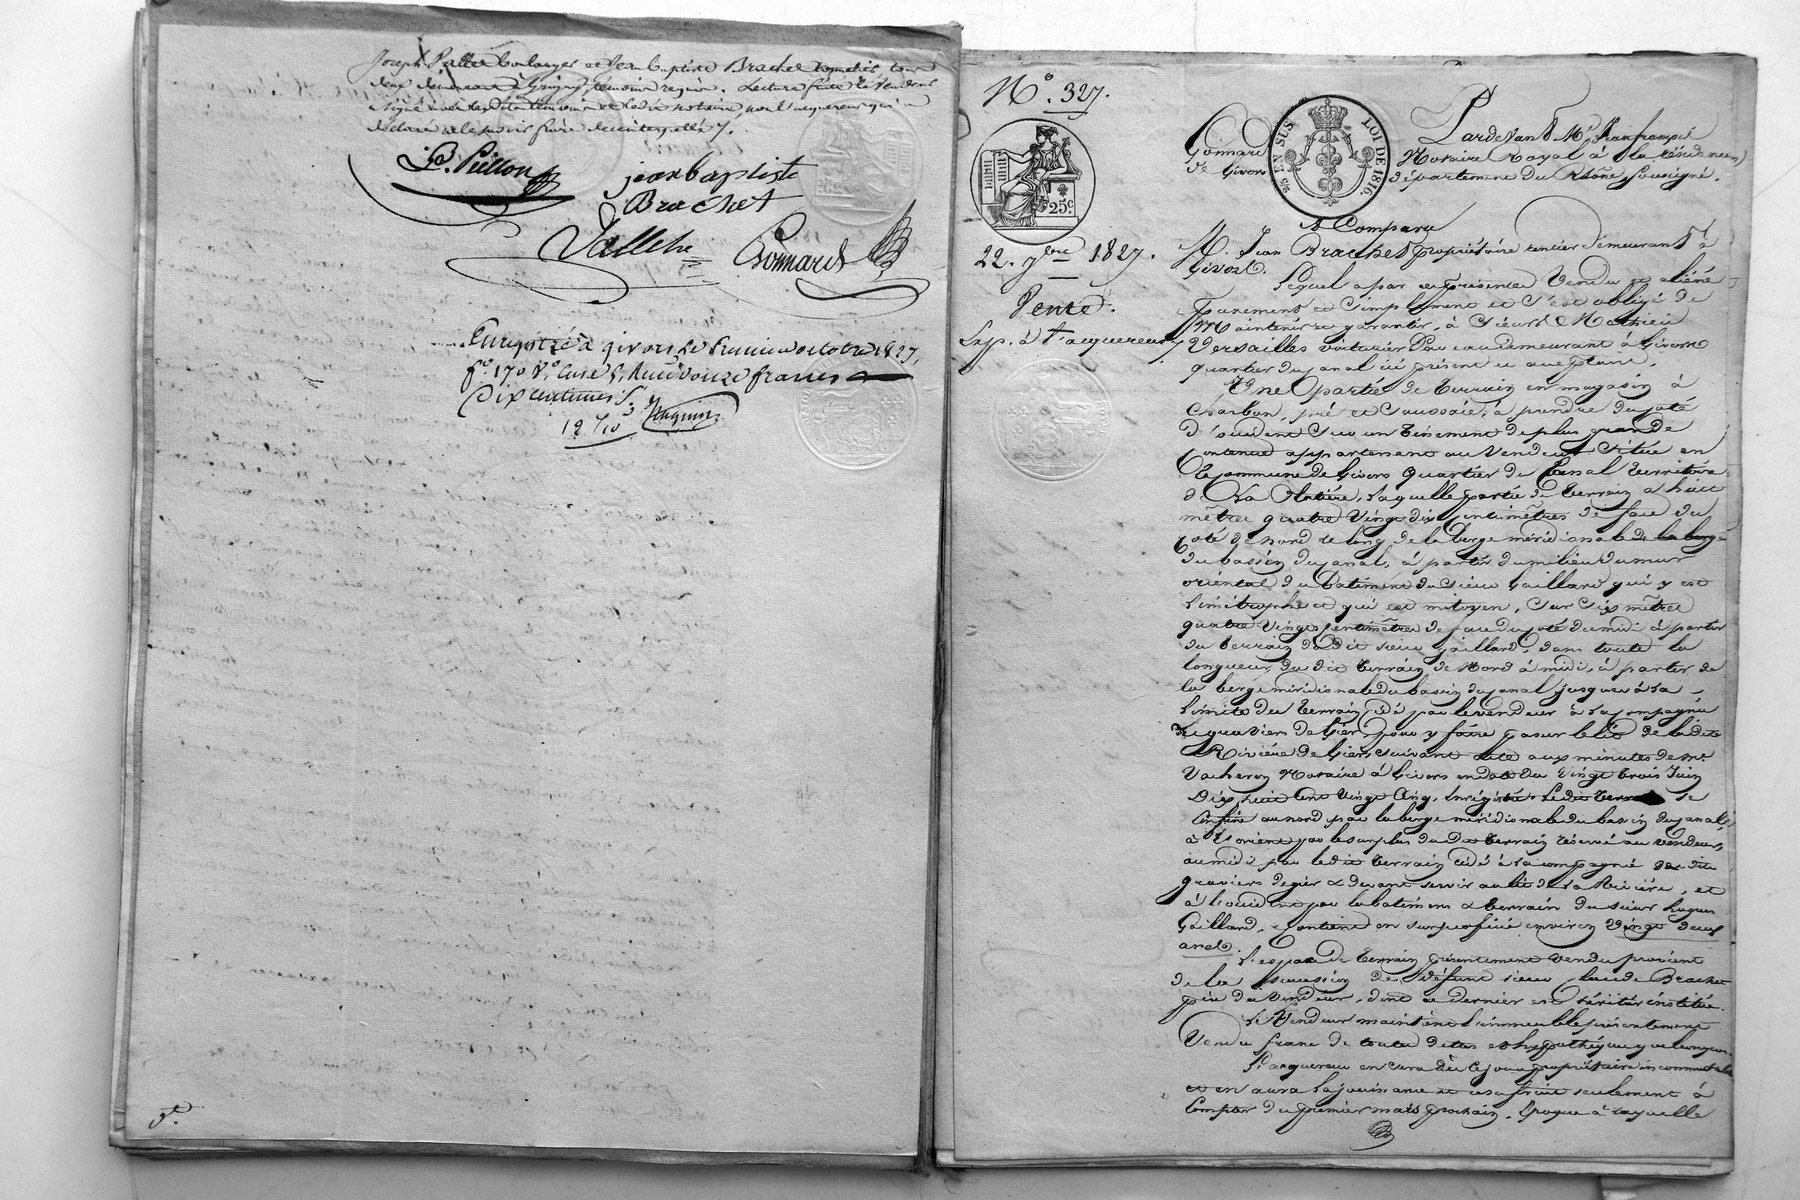 Joseph Valleé boulanger et Jean Baptiste Brachet tous
deux demeurant à Grigny témoins requis. Lecture faite le Vendeur
a signé avec lesdits témoins et ledit notaire, non l'acquéreur qui a
déclaré ne le savoir faire de ce interpellé ./.
P. Pitiou
jean baptiste
Brachet
Vallethe
Gonnard
Enregistré à givors le premier octobre 1827,
fo 170 Vo Case 5. Reçu douze francs
Dix centimes S.
12 f/10
3e.
No. 327.
25c.
22. 7bre 1827.
Vente.
Exp. à l'acquéreur
25 EN SUS LOI DE 1816.
Pardevant Me. Jean françois
Gonnard Notaire Royal à la résidence
de Givors département du Rhône, soussigné.
A Comparu
M. Jean Brachet propriétaire rentier demeurant à
Givors.
Lequel a par ces présentes Vendu et aliéné
purement et simplement et s'est obligé de
Maintenir et garantir, à Sieur Mathieu
Versailles voiturier par eau demeurant à Givors
quartier du canal ici présent et acceptant,
Une partie de terrain en magasin à
charbon, pré et saussaie, à prendre du côté
d'occident sur un tènement de plus grande
contenue appartenant au Vendeur situé en
la commune de Givors quartier du Canal territoire
de La laquelle partie de terrain a huit
mètres quatre Vingt dix centimètres de face du
côté de nord le long de la berge méridionale de la berge
du bassin du canal, à partir du milieu du mur
oriental du batiment du Sieur Gaillard qui y est
limitrophe et qui est mitoyen, sur Six mètres
quatre Vingts centimètres de face du côté du midi à partir
du terrain du dit sieur Gaillard, dans toute la
longueur du dit terrain de Nord à midi, à partir de
la berge méridionale du bassin du canal jusques à la
limite du terrain cédé par le vendeur à la compagnie
des graviers de Gier pour y faire passer le lit de ladite
Rivière de Gier suivant acte aux minutes de Me.
Vacheron Notaire à Givors en date du Vingt trois Juin
Dix huit cent vingt Cinq, Enregistré. Ledit terrain se
Confine au nord par la berge méridionale du bassin du canal,
à l'orient par le surplus du dit terrain réservé au vendeur,
au midi par le dit terrain cédé à la compagnie des dits
graviers de gier et devant servir au lit de la Rivière, et
à l'occident par le batiment et terrain du sieur hugues
Gaillard, Contient en superficie environ Vingt deux
ares.
L'espace de terrain présentement vendu provient
de la succession de défunt sieur Brachet
père du Vendeur, dont ce dernier est héritier institué.
Le Vendeur maintient l'immeuble présentement
Vendu franc de toutes dettes et hypothèques quelconques.
L'acquéreur en sera dès ce jour propriétaire incommutable
et en aura la jouissance et usufruit seulement à
Compter du premier mars prochain. Époque à laquelle